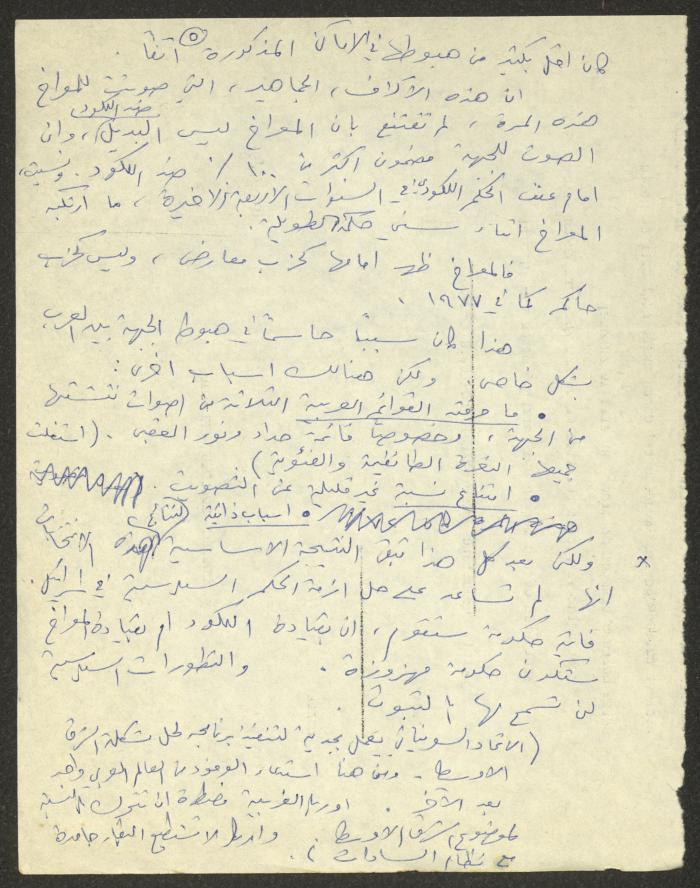 كان اقل بكثير من هبوطها في الاماكن المذكورة آنفاً .
٥
ان هذه الآلاف ، الجماهير ، التي صوتت للمعراخ
هذه المرة ، لم تقتنع بان المعراخ ليس البديل ، وان
ضد الليكود
الصوت للجبهة مضمون اكثر من ١٠٠٪ ضد الليكود . ونسيت ،
امام عنف الحكم الليكودي في السنوات الاربعة الاخيرة ، ما ارتكبه
المعراخ اثناء سني حكمه الطويلة .
فالمعراخ ظهر امامها كحزب معارض ، وليس كحزب
حاكم كما في ١٩٧٧ .
هذا كان سبباً حاسماً في هبوط الجبهة بين العرب
بشكل خاص . ولكن هنالك اسباب اخرى :
• ما حرفته القوائم العربية الثلاثة من اصوات
من الجبهة ، وخصوصاً قائمة حداد ونور العقبي . (استغلت
جميعها النعرة الطائفية والفئوية)
• امتناع نسبة غير قليلة عن التصويت .
• اسباب ذاتية
x ولكن بعد كل هذا تبقى النتيجة الاساسية لهذه الانتخابات
لنتائج
انها لم تساعد على حل ازمة الحكم السياسية في اسرائيل .
فاية حكومة ستقوم ، ان بقيادة الليكود ام بقيادة المعراخ
ستكون حكومة مهزوزة . والتطورات السياسية
لن تسمح لها بالثبوت .
(الاتحاد السوفياتي يعمل بجدية لتنفيذ برنامجه لحل مشكلة الشرق
الاوسط . ومن هنا استدعاء الوفود من العالم العربي واحد
بعد الآخر . اوربا الغربية مضطرة ان تتحرك بالنسبة
لموضوع الشرق الاوسط . وامريكا لا تستطيع البقاء جامدة
مع نظام السادات ) .